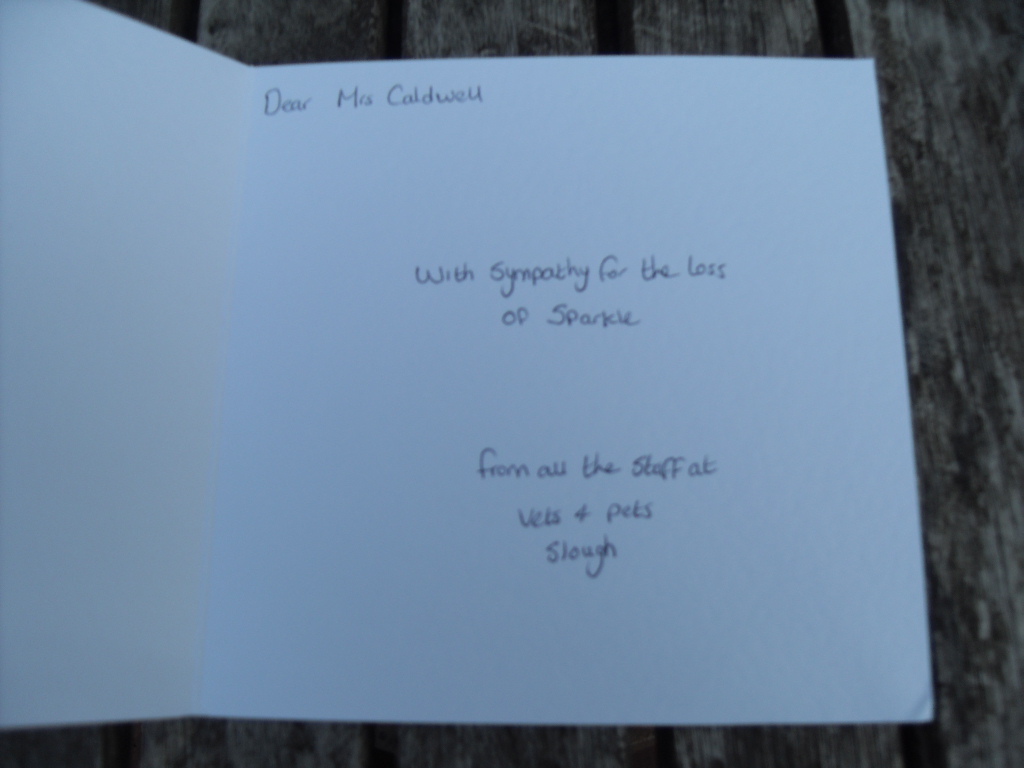 Dear Mrs Caldwell
With Sympathy for the Loss
of Sparkle
from all the Staff at
Vets 4 pets
Slough